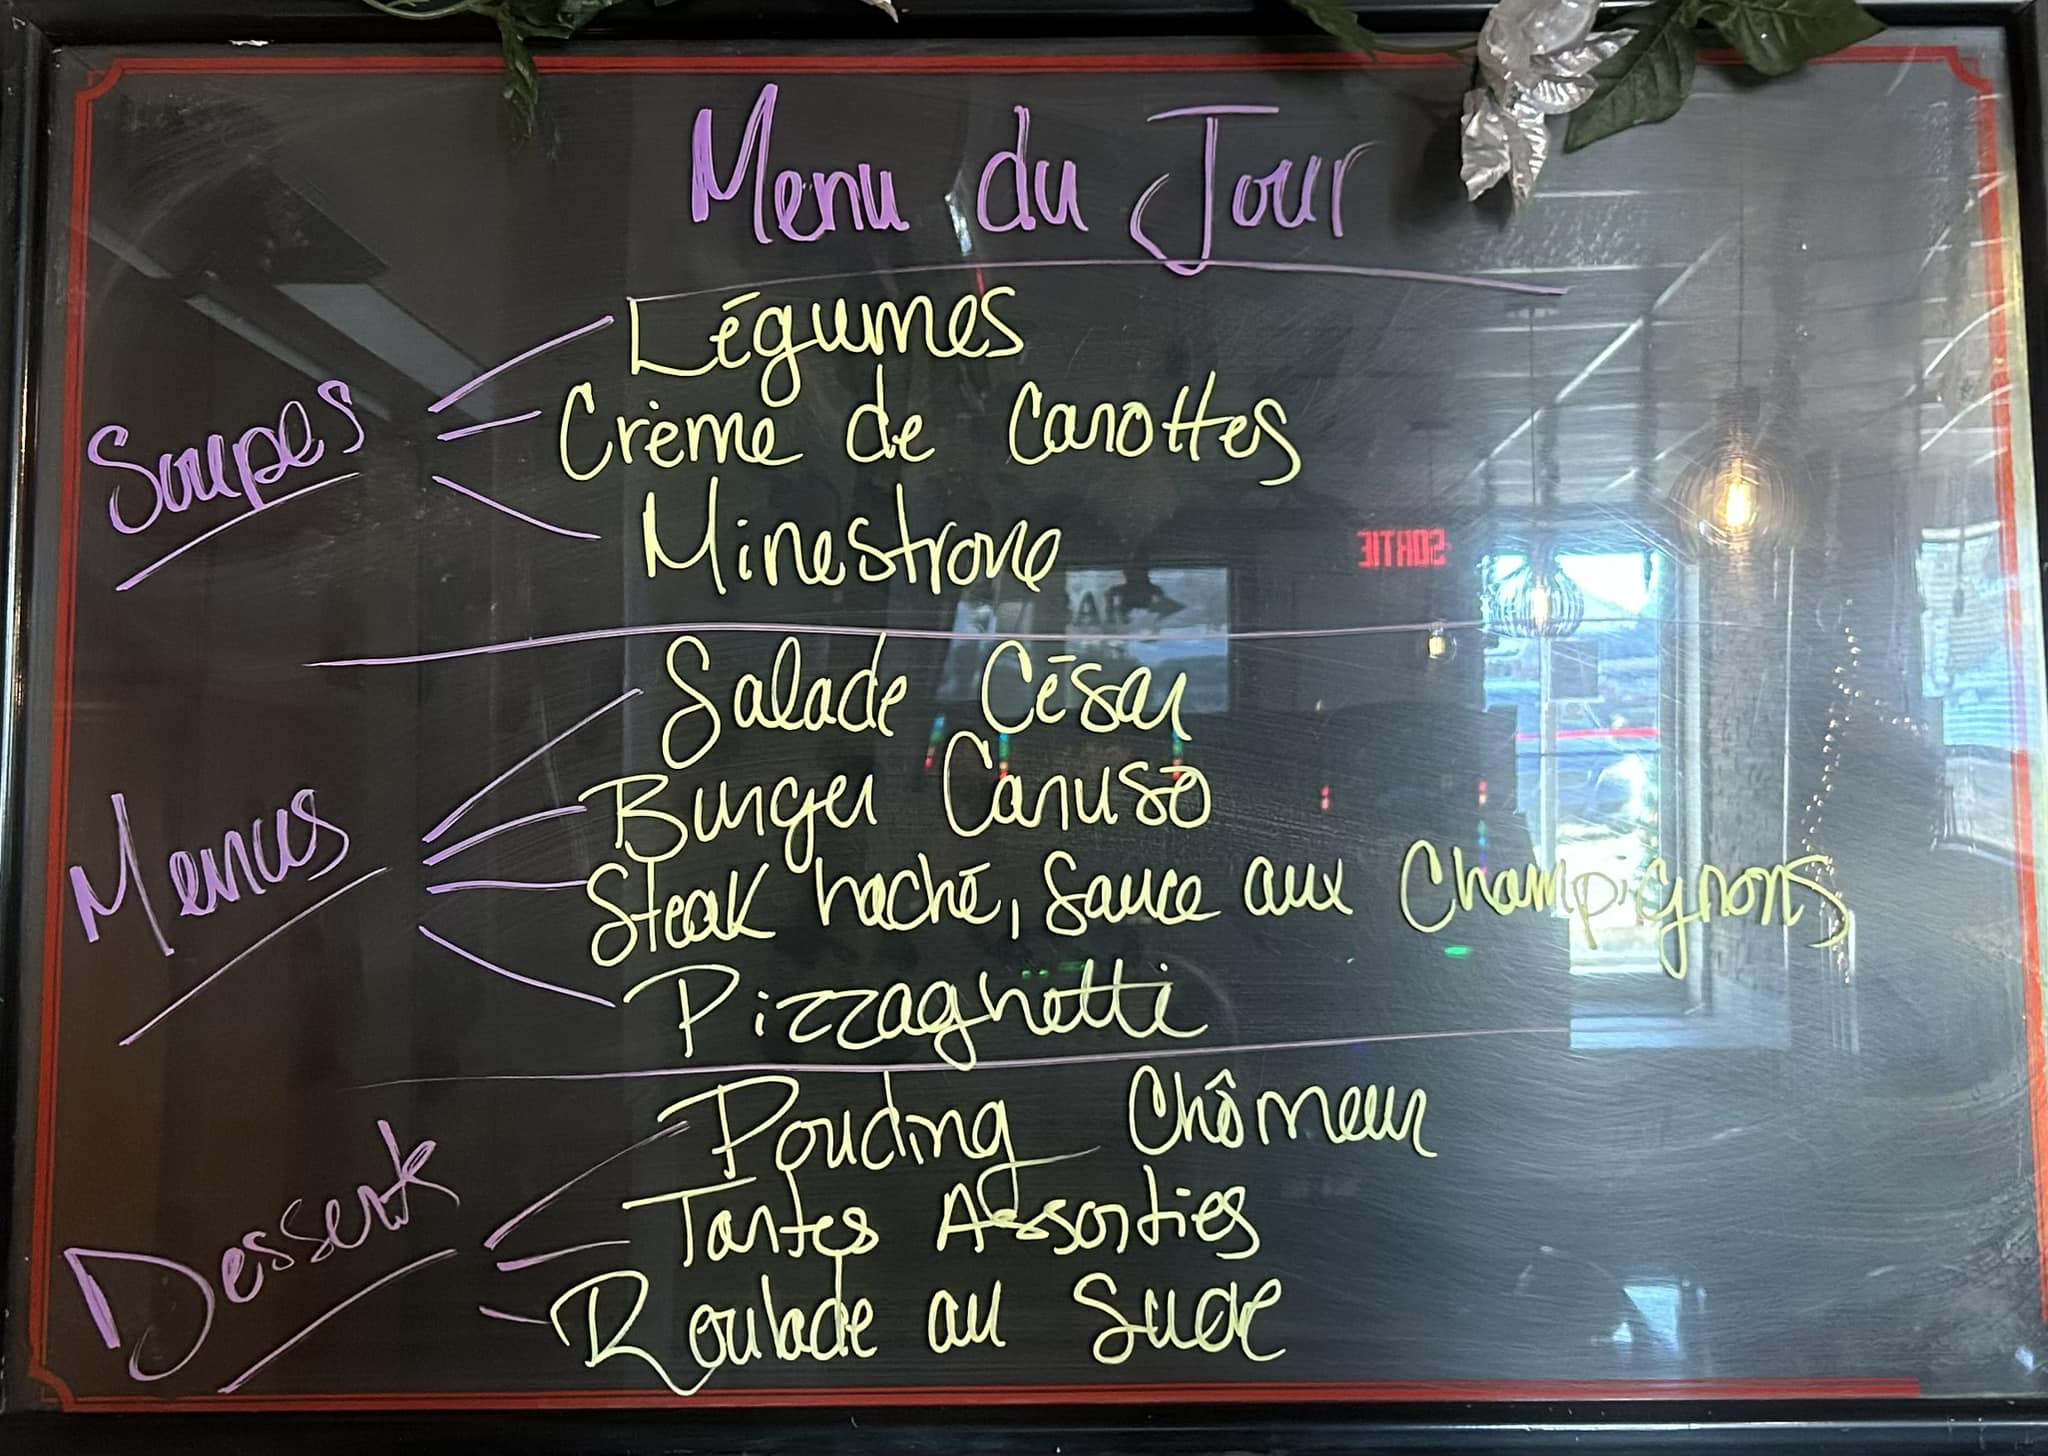 Menu du Jour
Soupes
Légumes
Crème de Carottes
Minestrone
Menus
Salade César
Burger Caruso
Steak haché, Sauce aux Champignons
Pizzaghetti
Desserts
Pouding Chômeur
Tartes Assorties
Roulade au Sucre
SORTIE
BAR